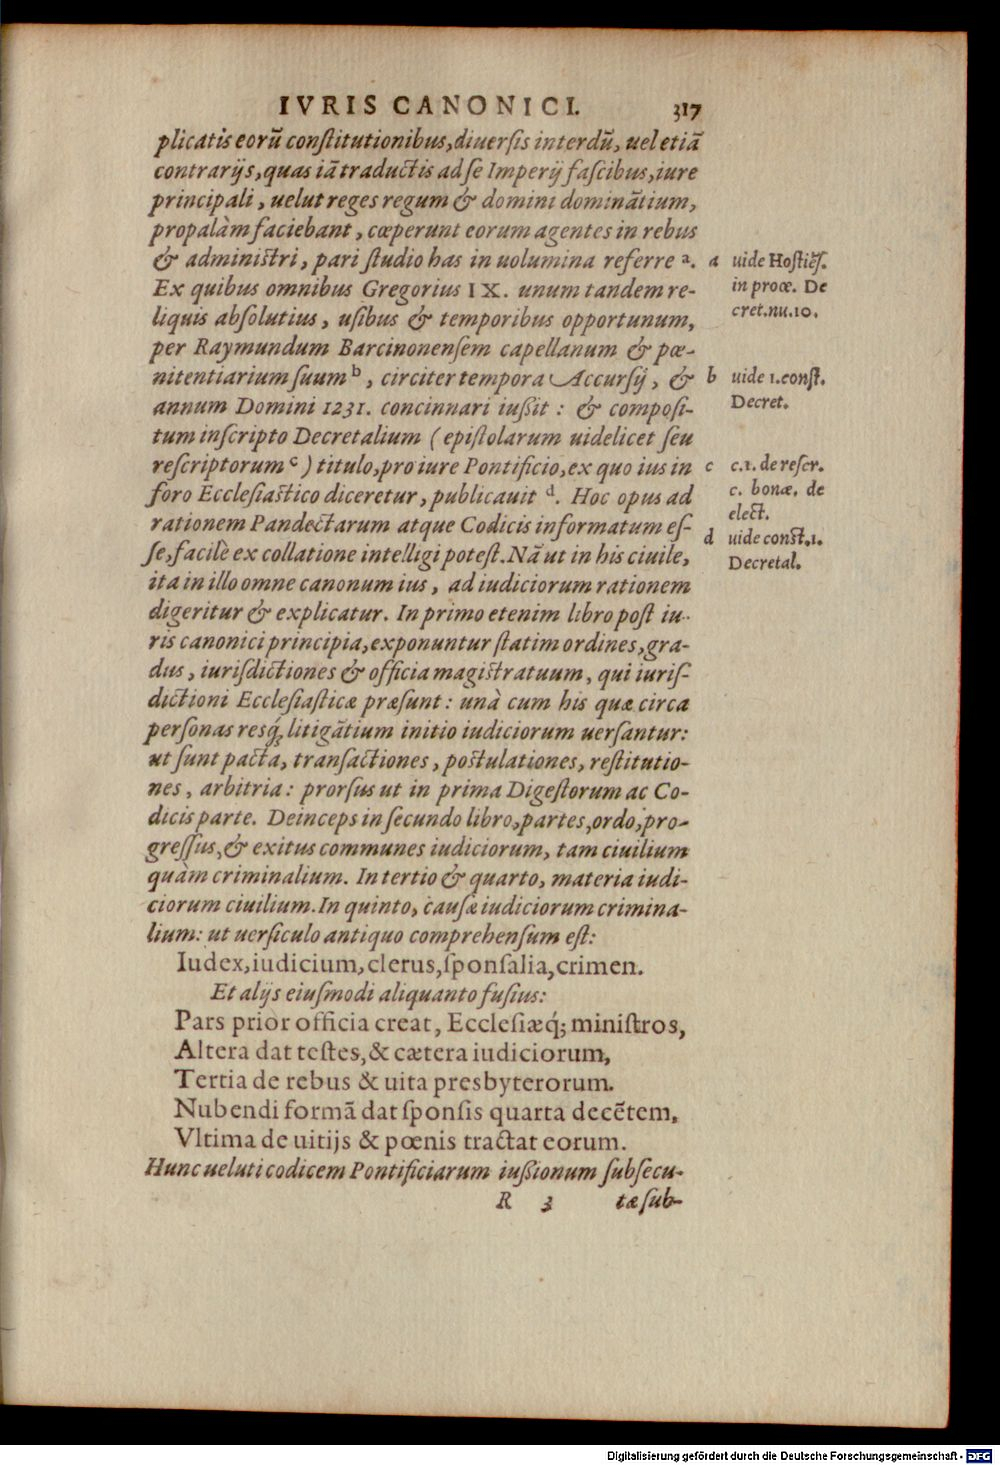 IVRIS CANONICI. 317
plicatis eorũ constitutionibus, diuersis interdũ, uel etiã
contrarijs, quas iã traductis ad se Imperij fascibus, iure
principali, uelut reges regum & domini dominãtium,
propalàm faciebant, cœperunt eorum agentes in rebus
& administri, pari studio has in uolumina referre ᵃ.
Ex quibus omnibus Gregorius IX. unum tandem re-
liquis absolutius, usibus & temporibus opportunum,
per Raymundum Barcinonensem capellanum & pœ-
nitentiarium suum ᵇ, circiter tempora Accursij, &
annum Domini 1231. concinnari iußit: & composi-
tum inscripto Decretalium (epistolarum uidelicet seu
rescriptorum ᶜ) titulo, pro iure Pontificio, ex quo ius in
foro Ecclesiastico diceretur, publicauit ᵈ. Hoc opus ad
rationem Pandectarum atque Codicis informatum es-
se, facilè ex collatione intelligi potest. Nã ut in his ciuile,
ita in illo omne canonum ius, ad iudiciorum rationem
digeritur & explicatur. In primo etenim libro post iu-
ris canonici principia, exponuntur statim ordines, gra-
dus, iurisdictiones & officia magistratuum, qui iuris-
dictioni Ecclesiasticæ præsunt: unà cum his quæ circa
personas resq́; litigãtium initio iudiciorum uersantur:
ut sunt pacta, transactiones, postulationes, restitutio-
nes, arbitria: prorsus ut in prima Digestorum ac Co-
dicis parte. Deinceps in secundo libro, partes, ordo, pro-
gressus, & exitus communes iudiciorum, tam ciuilium
quàm criminalium. In tertio & quarto, materia iudi-
ciorum ciuilium. In quinto, causæ iudiciorum crimina-
lium: ut uersiculo antiquo comprehensum est:
Iudex, iudicium, clerus, sponsalia, crimen.
Et alijs eiusmodi aliquanto fusius:
Pars prior officia creat, Ecclesiæq́; ministros,
Altera dat testes, & cætera iudiciorum,
Tertia de rebus & uita presbyterorum.
Nubendi formã dat sponsis quarta decẽtem,
Vltima de uitijs & pœnis tractat eorum.
Hunc ueluti codicem Pontificiarum iußionum subsecu-
R 3 tæ sub-
a uide Hostiẽs.
in proœ. De
cret. nu. 10.
b uide 1. const.
Decret.
c c. 1. de rescr.
c. bonæ. de
elect.
d uide const. 1.
Decretal.
Digitalisierung gefördert durch die Deutsche Forschungsgemeinschaft - DFG